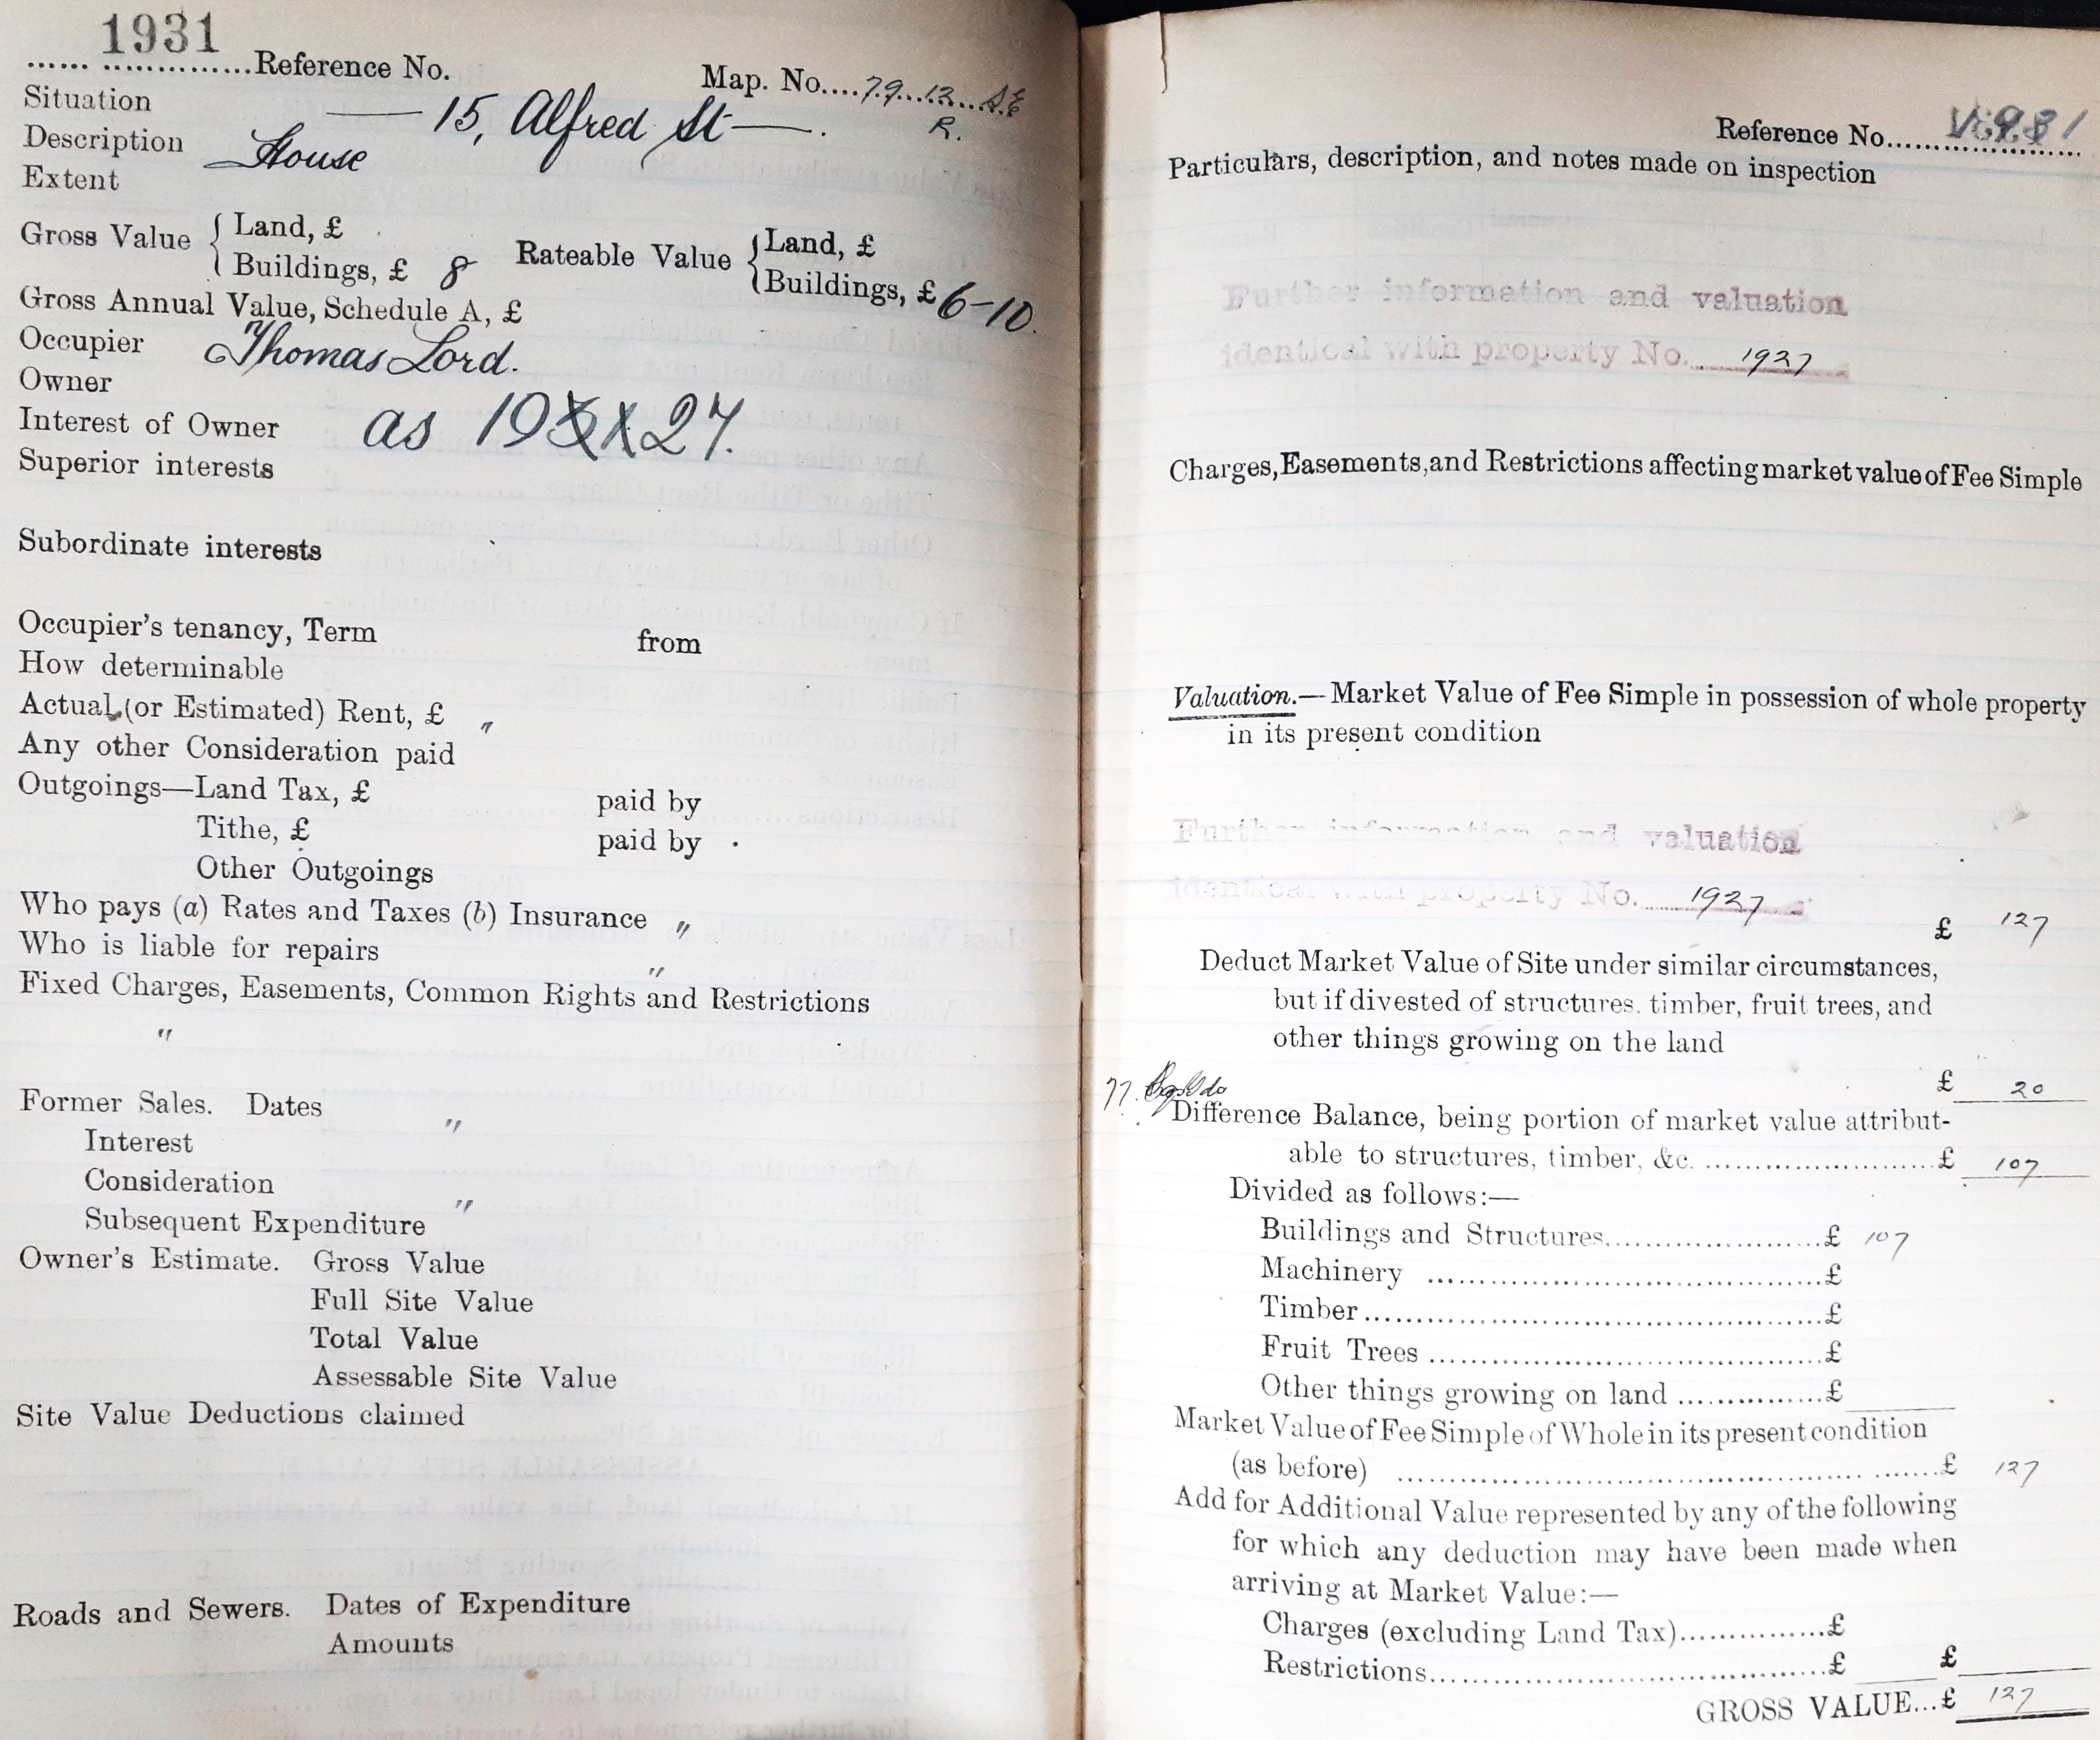 1931
...... ...............Reference No.
Map. No....79...13...S.E
R.
Situation — 15, Alfred St —.
Description House
Extent
Gross Value { Land, £
Buildings, £ 8
Rateable Value { Land, £
Buildings, £ 6-10.
Gross Annual Value, Schedule A, £
Occupier Thomas Lord.
Owner
Interest of Owner as 1927.
Superior interests
Subordinate interests
Occupier's tenancy, Term from
How determinable
Actual (or Estimated) Rent, £ "
Any other Consideration paid
Outgoings—Land Tax, £ paid by
Tithe, £ paid by
Other Outgoings
Who pays (a) Rates and Taxes (b) Insurance "
Who is liable for repairs "
Fixed Charges, Easements, Common Rights and Restrictions
"
Former Sales. Dates "
Interest
Consideration "
Subsequent Expenditure
Owner's Estimate. Gross Value
Full Site Value
Total Value
Assessable Site Value
Site Value Deductions claimed
Roads and Sewers. Dates of Expenditure
Amounts
Reference No.....................
Particulars, description, and notes made on inspection
Further information and valuation
identical with property No. 1927
Charges, Easements, and Restrictions affecting market value of Fee Simple
Valuation.—Market Value of Fee Simple in possession of whole property
in its present condition
Further information and valuation
identical with property No. 1927
£ 127
Deduct Market Value of Site under similar circumstances,
but if divested of structures, timber, fruit trees, and
other things growing on the land
£ 20
77.
Difference Balance, being portion of market value attribut-
able to structures, timber, &c. ..........................£ 107
Divided as follows:—
Buildings and Structures........................£ 107
Machinery ...........................................£
Timber..................................................£
Fruit Trees ...........................................£
Other things growing on land ...............£
Market Value of Fee Simple of Whole in its present condition
(as before) .......................................................£ 127
Add for Additional Value represented by any of the following
for which any deduction may have been made when
arriving at Market Value:—
Charges (excluding Land Tax)...............£
Restrictions..........................................£ £
GROSS VALUE...£ 127